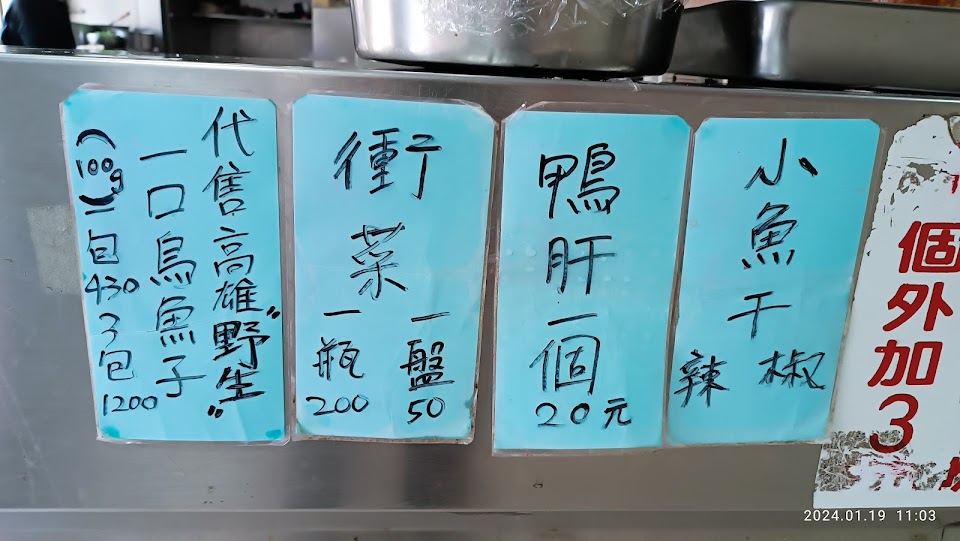 代售高雄"野生"
一口烏魚子
(100g)一包430 3包1200
衝菜
一盤50
一瓶200
鴨肝一個
20元
小魚干
辣椒
個外加3
2024.01.19 11:03